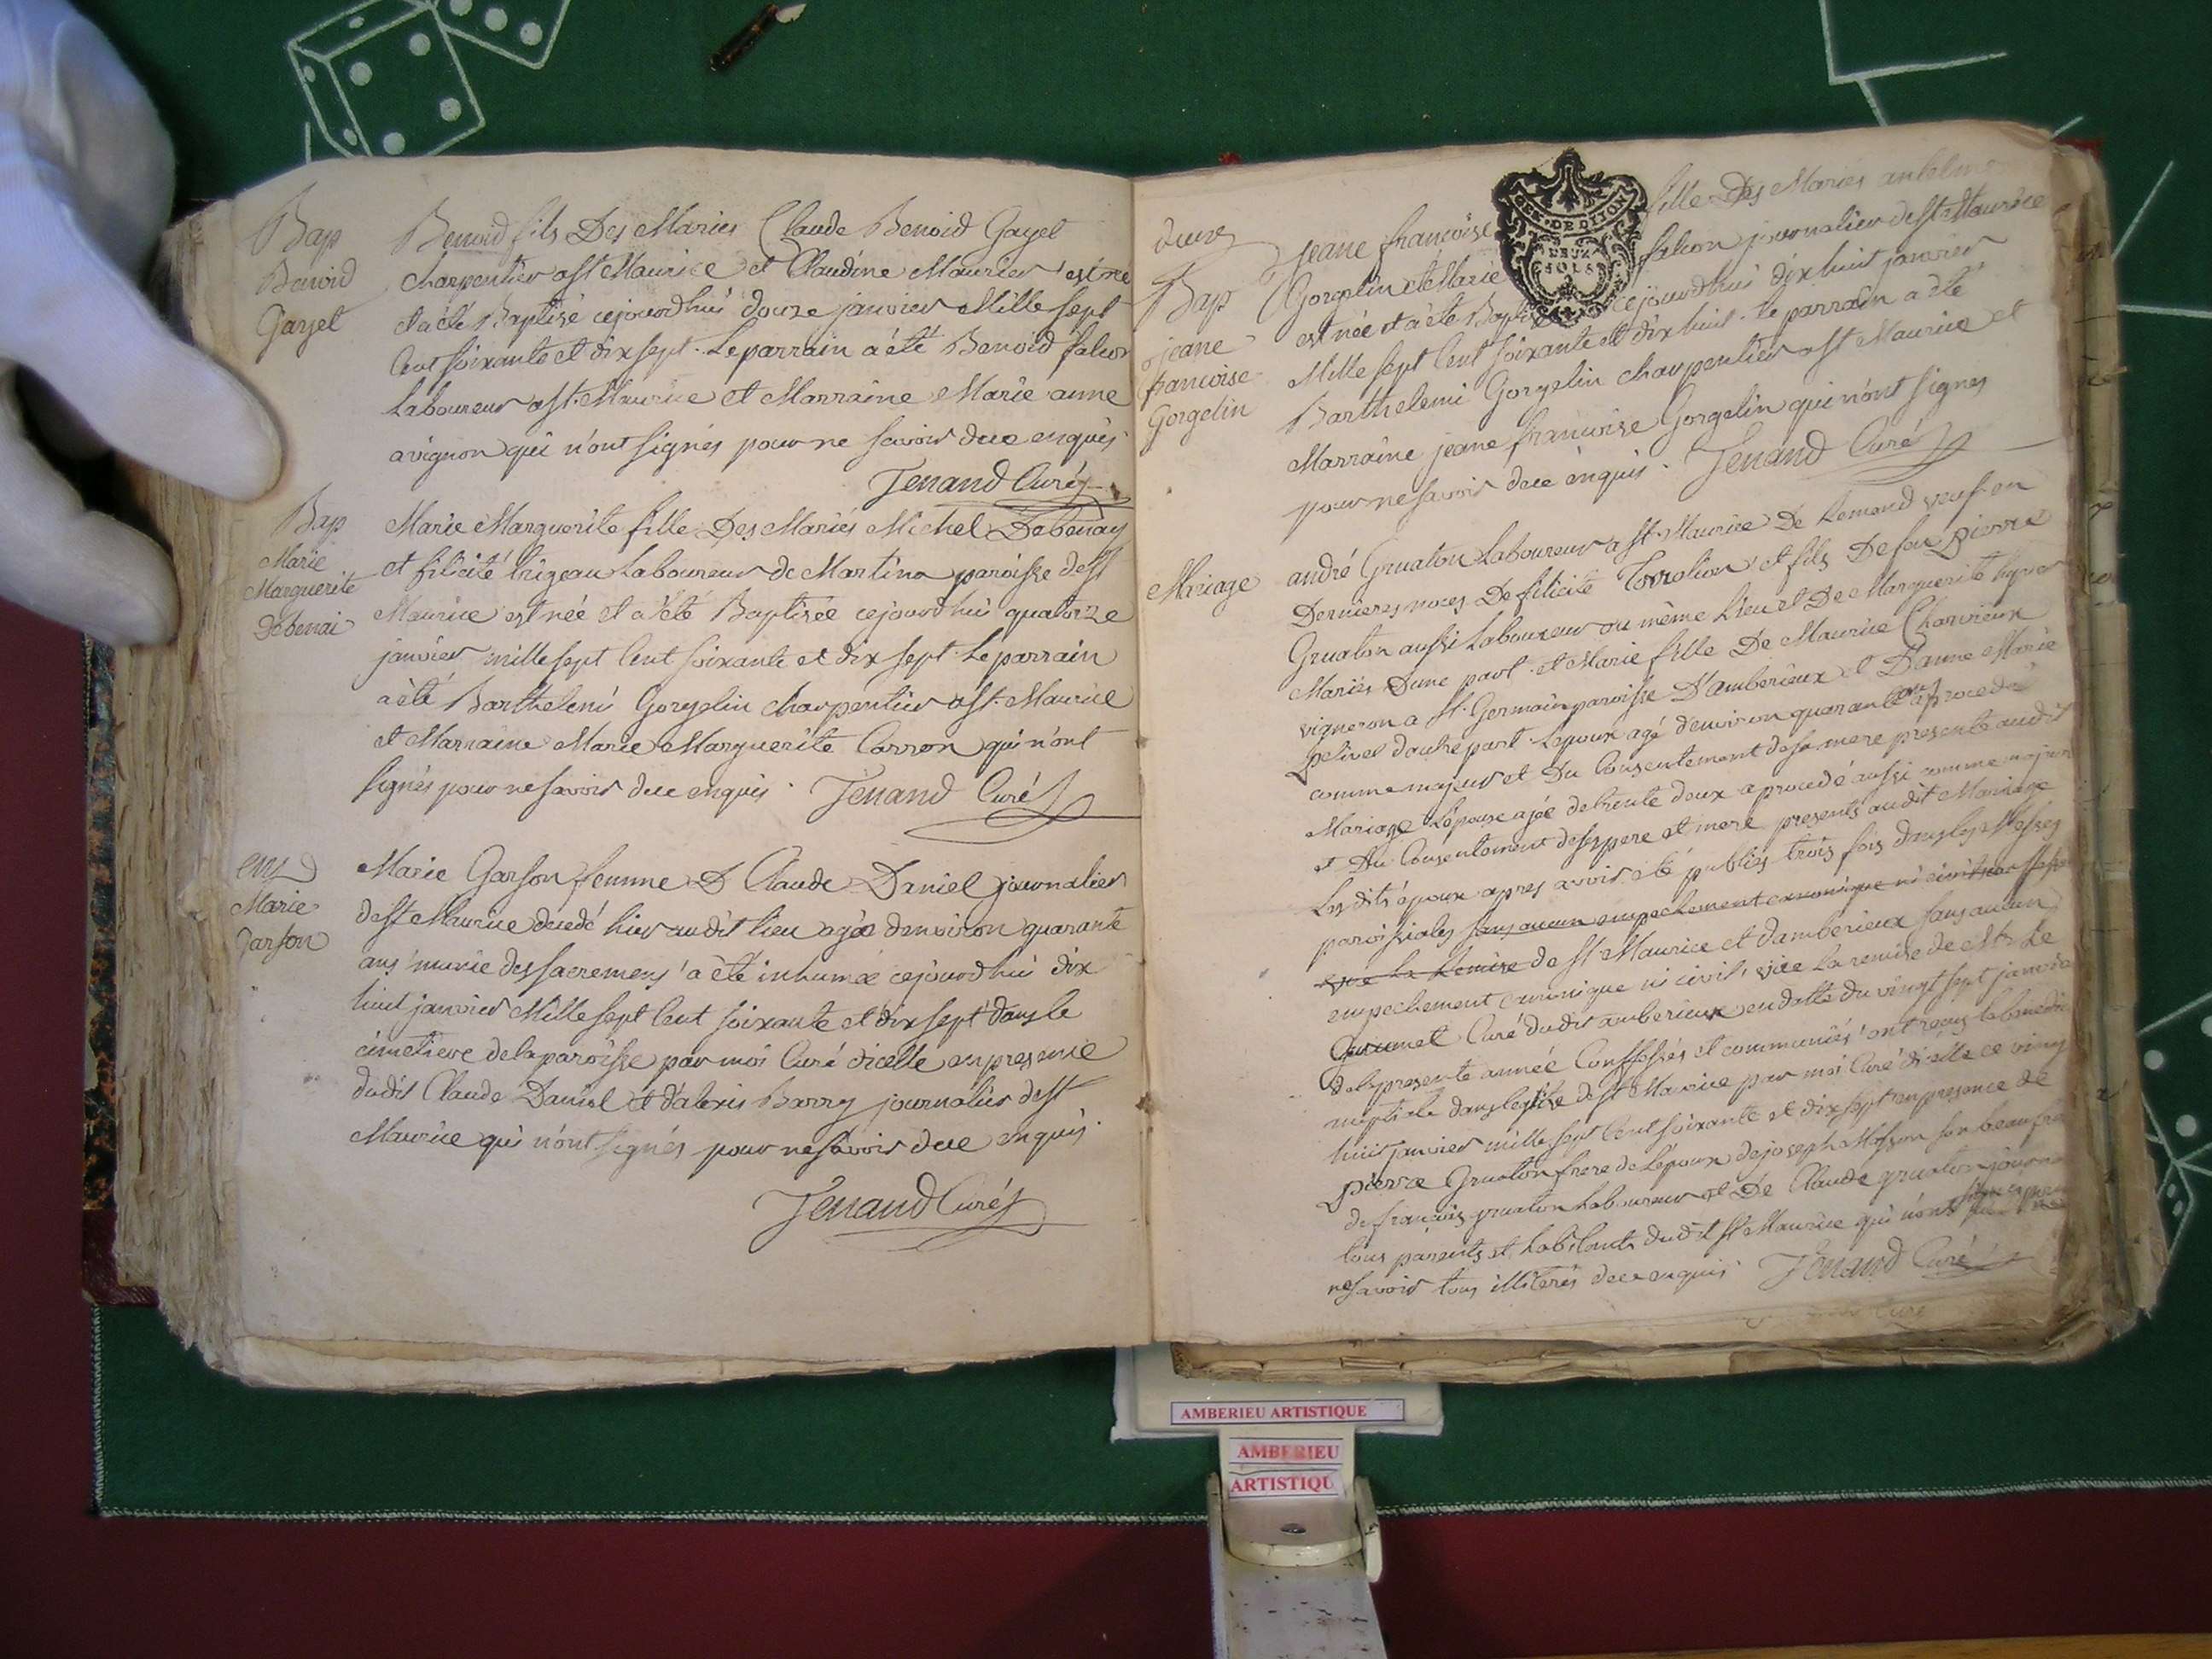 Bap
Benoid
Gayet
Benoid fils Des Mariés Claude Benoid Gayet
charpentier a St Maurice et Claudine Maurier est né
et a été Baptisé cejourdhui douze janvier Mille sept
Cent soixante et dix sept. Le parrain a été Benoid falcon
Laboureur a St. Maurice et Marraine Marie anne
avignon qui n'ont signés pour ne savoir de ce enquis
Jenand Curé
Bap
Marie
Marguerite
Debenai
Marie Marguerite fille Des Mariés Michel Debenay
et filicité brigeau Laboureur de Martina paroisse de St
Maurice est née et a été Baptisée cejourdhui quatorze
janvier mille sept Cent soixante et dix sept. Le parrain
a été Barthelemi Gorgelin charpentier a St. Maurice
et Marraine Marie Marguerite Carron qui n'ont
signés pour ne savoir de ce enquis. Jenand Curé
Marie
Garson
Marie Garson femme D Claude Daniel journalier
de St Maurice décedé hier audit lieu agée denviron quarante
ans munie des sacremens a été inhumée cejourdhui dix
huit janvier Mille sept Cent soixante et dix sept dans le
cimetiere de la paroisse par moi Curé dicelle en presence
dudit Claude Daniel et d'alexis Barry journalier de St
Maurice qui n'ont signés pour ne savoir de ce enquis.
Jenand Curé
Bap
jeane
francoise
Gorgelin
GEN. DE DIJON
DEUX
SOLS
Jeane francoise fille Des Mariés anthelme
Gorgelin et Marie falcon journalier de St Maurice
est née et a été Baptisée cejourdhui dix huit janvier
Mille sept Cent soixante et dix huit. le parrain a été
Barthelemi Gorgelin charpentier a St Maurice et
Marraine jeane francoise Gorgelin qui n'ont signés
pour ne savoir de ce enquis. Jenand Curé
Mariage
andré Gruaton Laboureur a St. Maurice De Remand veuf en
Dernieres noces De filicité Torrolion et fils De feu pierre
Gruaton aussi Laboureur au même lieu et De Marguerite
Mariés Dune part. et Marie fille De Maurice Charvieux
vigneron a St. Germain paroisse D'amberieux et D'anne Marie
pelivet dautre part. Lepoux agé denviron quarante ans a procedé
comme majeur et Du Consentement de sa mere presente audit
Mariage Lépouse agée de trente deux a procedé aussi comme majeure
et Du Consentement de ses pere et mere presents audit Mariage
Les dits époux apres avoir été publiés trois fois dans les Messes
paroissiales sans aucun empechement canonique ni civil
vüe La Remise de St Maurice et damberieux sans aucun
empechement canonique ni civil, vüe La remise de Mr Le
Curé dudit amberieux en datte du vingt sept janvier
de la presente année Confessés et communiés ont reçus la benedic
nuptiale dans leglise de St Maurice par moi Curé dicelle ce vingt
huit janvier mille sept Cent soixante et dix sept en presence de
pierre Gruaton frere de Lépoux de joseph Masson son beaufre
de françois gruaton Laboureur et De Claude gruaton journa
tous parents et habitants dudit St Maurice qui n'ont signés pour
ne savoir tous illiterés de ce enquis. Jenand Curé
AMBERIEU ARTISTIQUE
AMBERIEU
ARTISTIQU